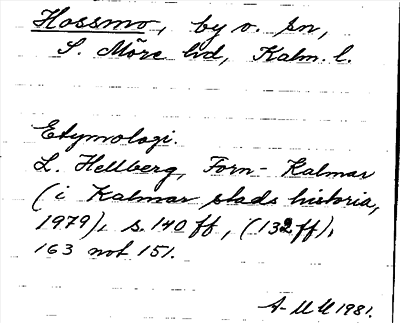 Hossmo, by o. sn,
S. Möre hd, Kalm. l.
Etymologi.
L. Hellberg, Forn-Kalmar
(i Kalmar stads historia,
1979), s. 140 ff, (132 ff),
163 not 151.
A-M M 1981.